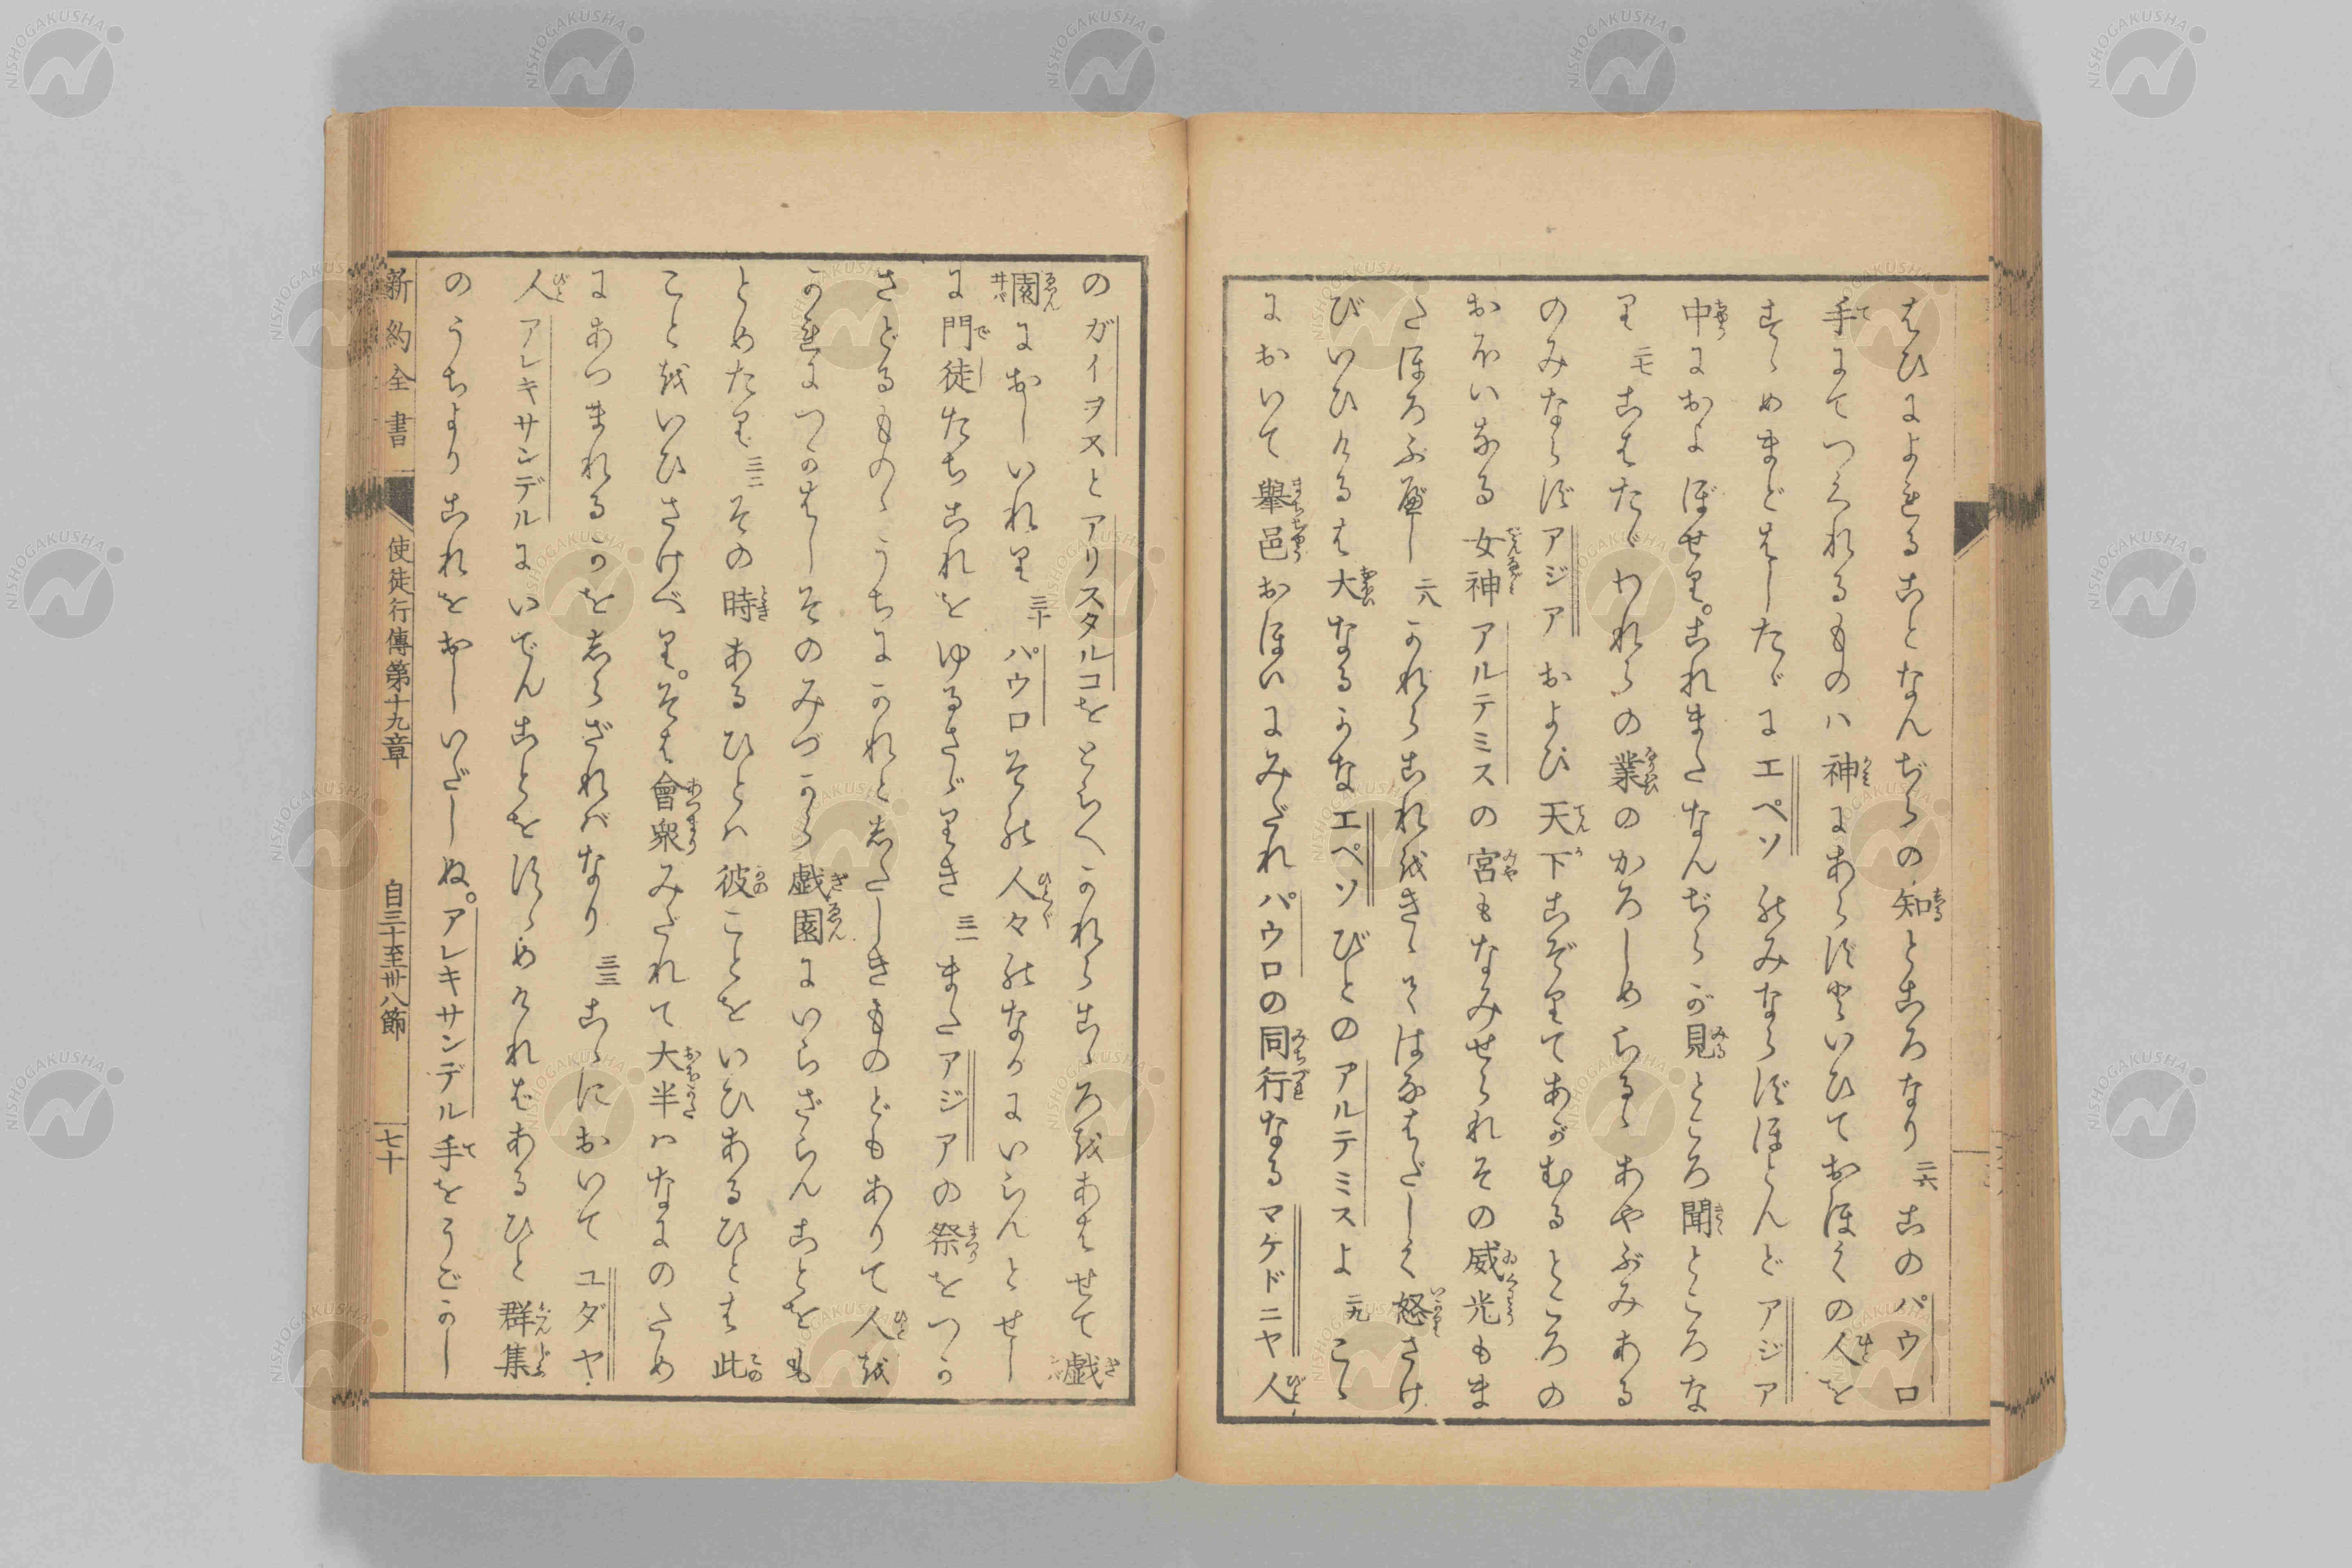 はひによれることなんぢらの知ところなり 二六 このパウロ
手にてつくれるものハ神にあらずといひておほくの人を
すゝめまどはしたゞにエペソのみならずほとんどアジア
中におよぼせり。これまたなんぢらが見ところ聞ところな
り 二七 こはたゞわれらの業のかろしめらるゝあやぶみある
のみならずアジアおよび天下こぞりてあがむるところの
おほいなる女神アルテミスの宮もなみせられその威光もま
たほろぶべし 二八 かれらこれをきゝてはなはだしく怒さけ
びいひけるは大なるかなエペソびとのアルテミスよ 二九 こゝ
において舉邑おほいにみだれパウロの同行なるマケドニヤ人
のガイヲスとアリスタルコをとらへかれらこゝろをあはせて戯
園におしいれり 三十 パウロその人々のなかにいらんとせし
に門徒たちこれをゆるさゞりき 三一 またアジアの祭をつか
さどるものゝうちにかれとしたしきものどもありて人を
かれにつかはしそのみづから戯園にいらざらんことをも
とめたり 三二 その時あるひとハ彼ことをいひあるひとは此
ことをいひさけべり。そは會衆みだれて大半ハなにのため
にあつまれるかをしらざれバなり 三三 こゝにおいてユダヤ
人アレキサンデルにいでんことをすゝめければあるひと群集
のうちよりこれをおしいだしぬ。アレキサンデル手をうごかし
新約全書
使徒行傳第十九章
自三十至卅八節
七十
NISHOGAKUSHA